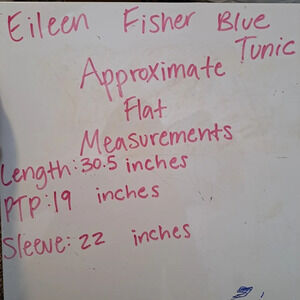 Eileen Fisher Blue
Tunic
Approximate
Flat
Measurements
Length: 30.5 inches
PTP: 19 inches
Sleeve: 22 inches